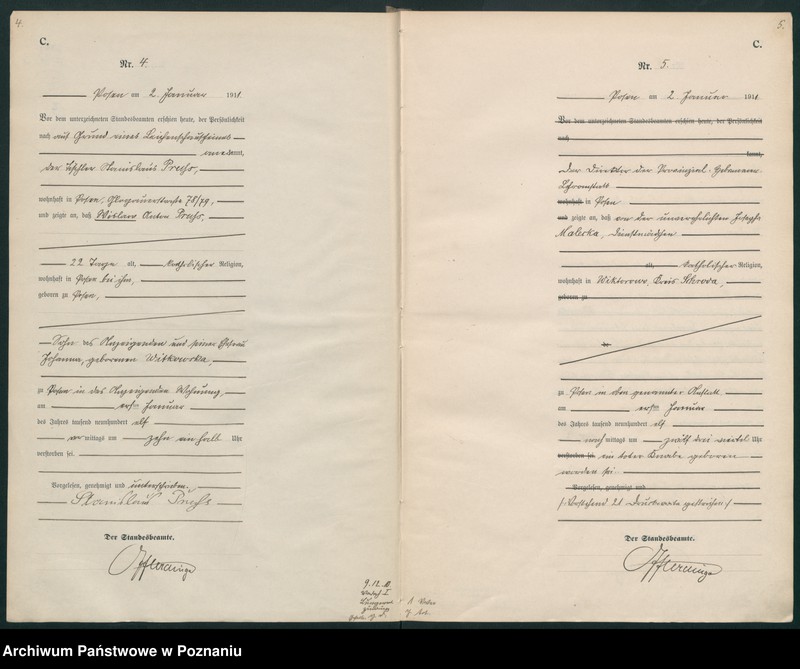 4.
C.
Nr. 4.
Posen am 2. Januar 1911.
Vor dem unterzeichneten Standesbeamten erschien heute, der Persönlichkeit
nach auf Grund eines Leichenschauscheines
anerkannt,
der Tischler Stanislaus Preyss,
wohnhaft in Posen, Glogauerstraße 78/79,
und zeigte an, daß Anton
22 Tage alt, katholischer Religion,
wohnhaft in Posen bei ihm,
geboren zu Posen,
Sohn des Anzeigenden und seiner Ehefrau
Johanna, geborenen Witkowska,
zu Posen in des Anzeigenden Wohnung,
am ersten Januar
des Jahres tausend neunhundert elf
vormittags um zehn ein halb Uhr
verstorben sei.
Vorgelesen, genehmigt und unterschrieben.
Stanislaus
Der Standesbeamte.
5.
C.
Nr. 5.
Posen am 2. Januar 1911
Vor dem unterzeichneten Standesbeamten erschien heute, der Persönlichkeit
nach
kannt,
Der Direktor der Provinzial-Hebammen-
Lehranstalt
wohnhaft in Posen
und zeigte an, daß von der unverehelichten Josepha
Malecka, Dienstmädchen
alt, katholischer Religion,
wohnhaft in Wiktorowo, Kreis Schroda,
geboren zu
zu Posen in der genannten Anstalt
am ersten Januar
des Jahres tausend neunhundert elf
nachmittags um drei viertel Uhr
verstorben sei. ein toter Knabe geboren
worden sei.
Vorgelesen, genehmigt und
/: Vorstehend 21 Druckworte gestrichen :/
Der Standesbeamte.
9.12.
Archiwum Państwowe w Poznaniu